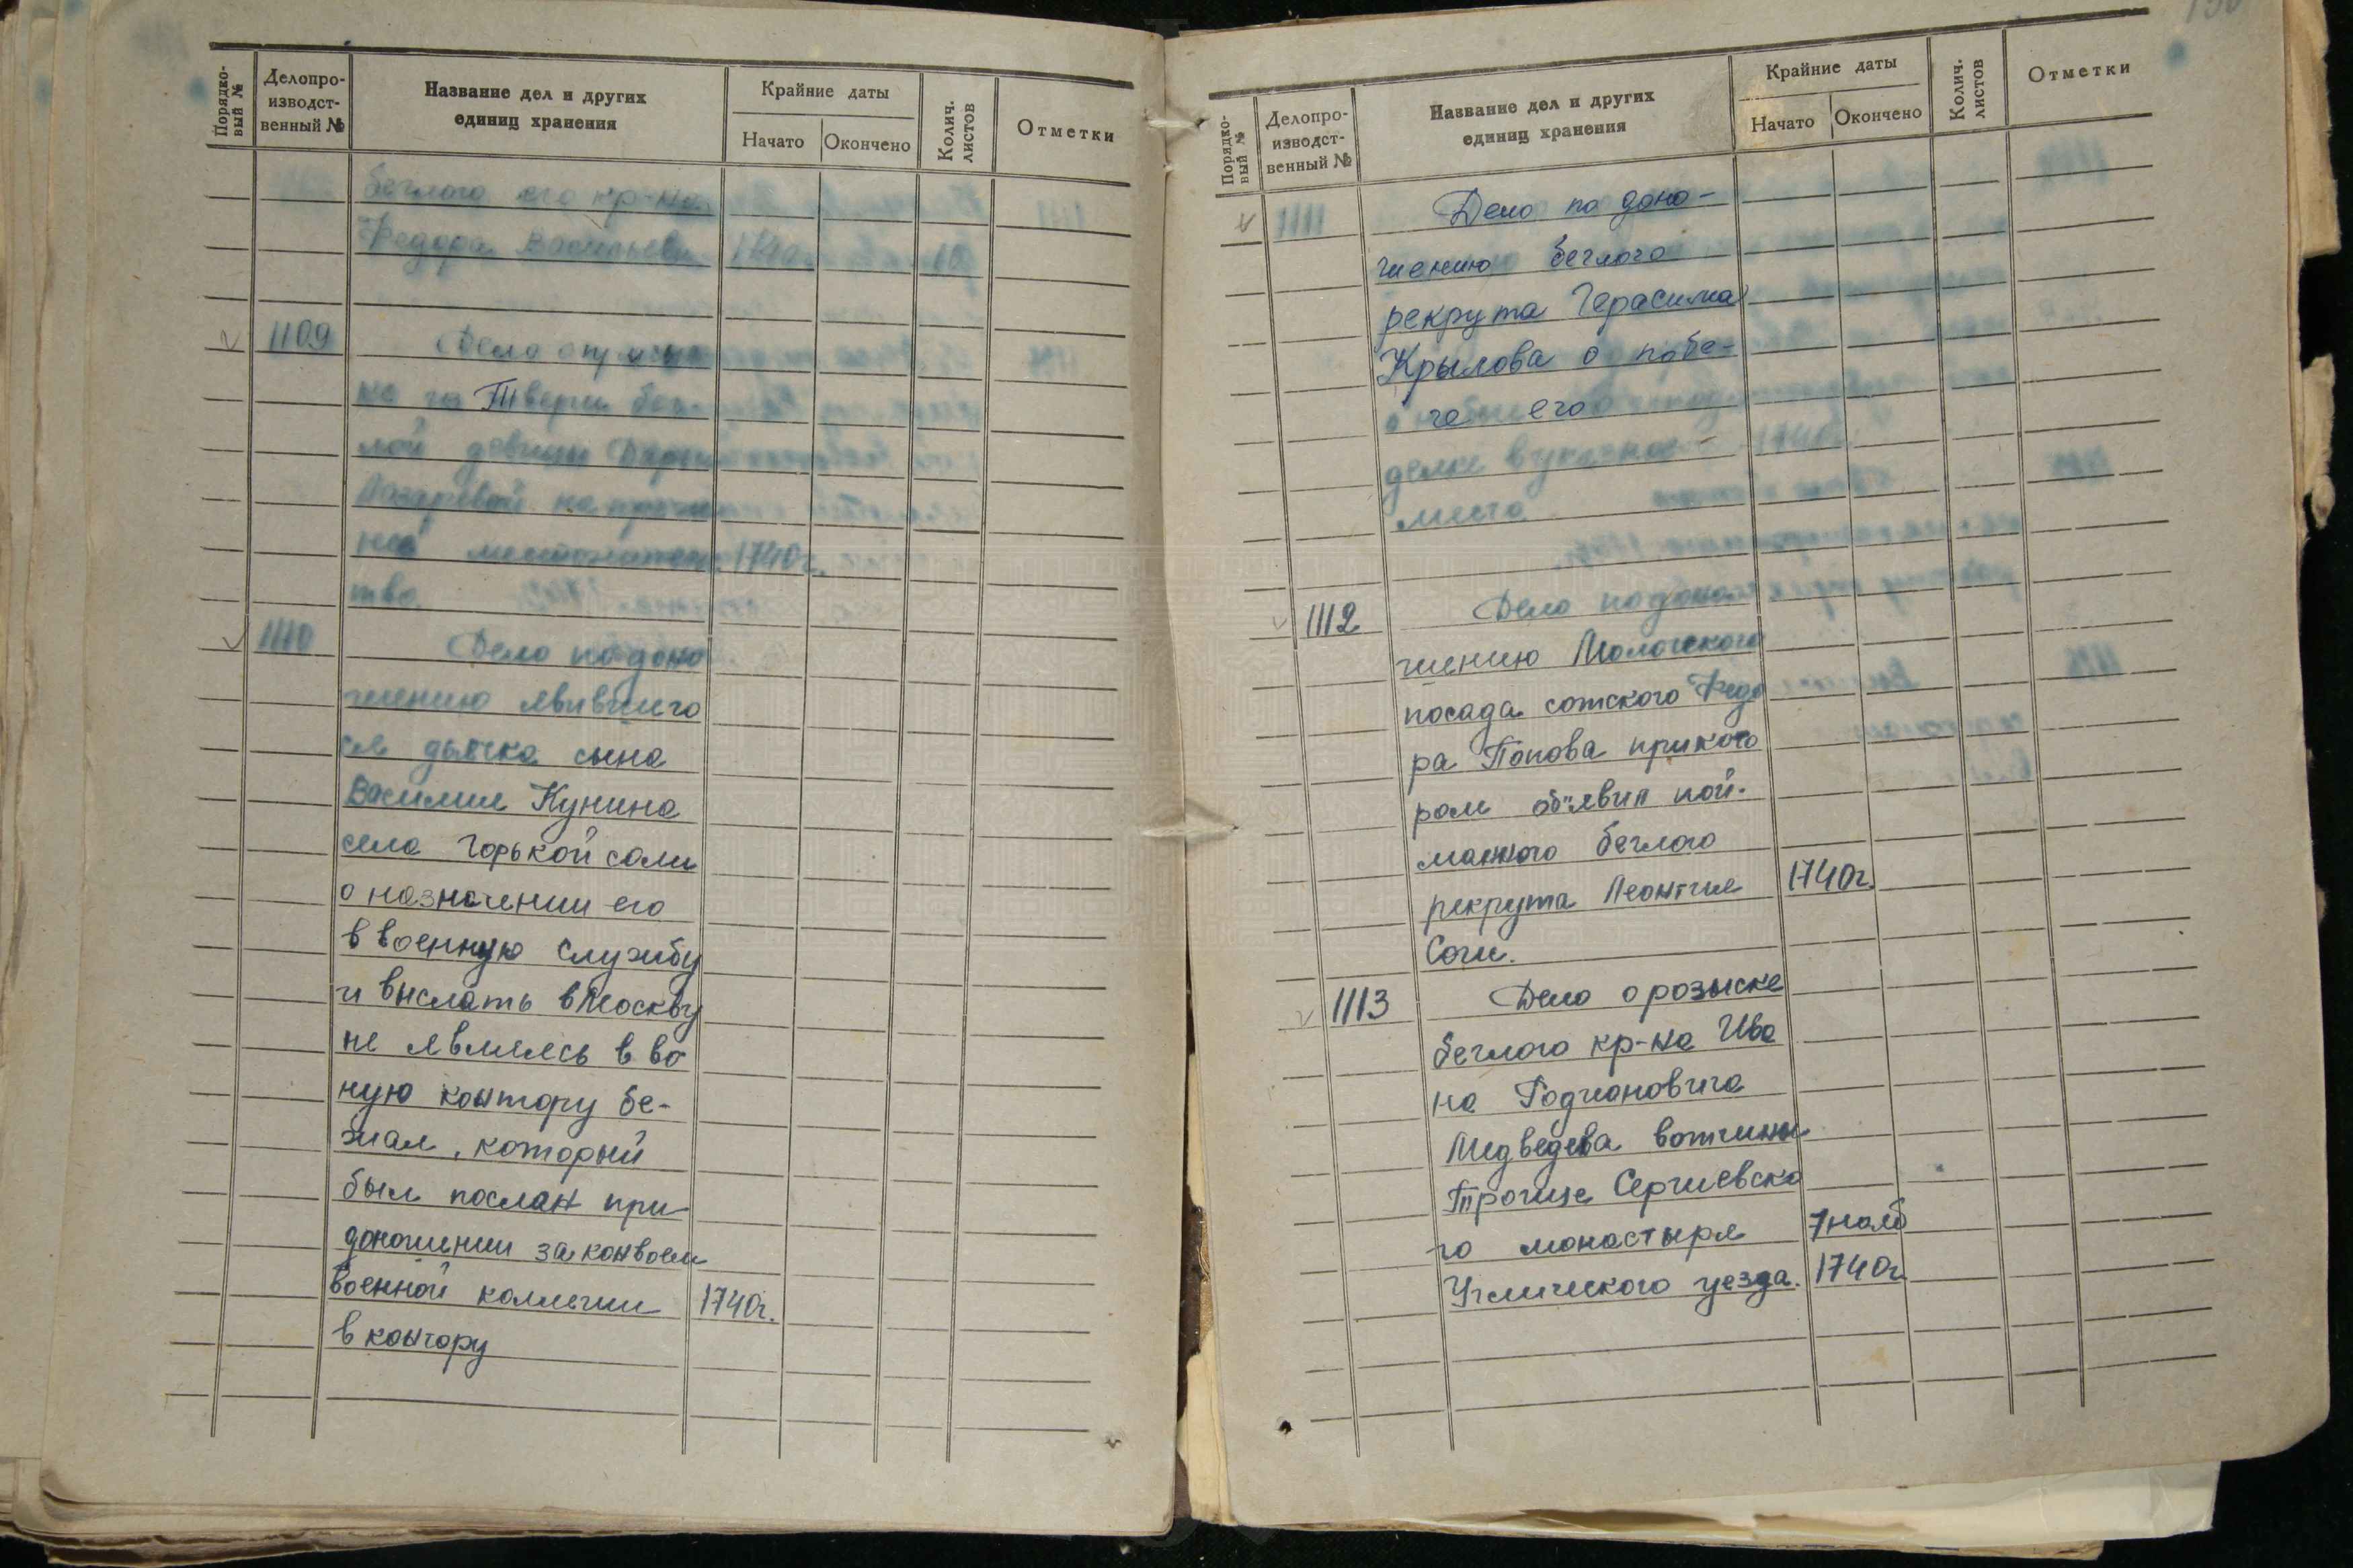 Порядко-
вый №
Делопро-
изводст-
венный №
Название дел и других
единиц хранения
Крайние даты
Начато
Окончено
Колич.
листов
Отметки
беглого его кр-на
Федора Васильева 1740г. 10
1109
Дело о
ке из Твери бег-
лой девки Дарьи
Лазаревой на прежнее
ней жительс 1740г.
тво
1110
Дело по доно
шению явившего
ся дьячка сына
Василия Кунина
села Горькой соли
о назначении его
в военную службу
и выслать в Москву
не являясь в во
ную контору бе-
жал, который
был послан при
доношении за конвоем
военной коллегии 1740г.
в контору
Порядко-
вый №
Делопро-
изводст-
венный №
Название дел и других
единиц хранения
Крайние даты
Начато
Окончено
Колич.
листов
Отметки
1111
Дело по доно-
шению беглого
рекрута Герасима
Крылова о побе-
ге его
1740г.
места
1112
Дело по доно
шению Моложского
посада сотского Федо
ра Попова при кото
ром об"явил пой-
манного беглого
рекрута Леонтия 1740г.
Соги.
1113
Дело о розыске
беглого кр-на Ива
на Родионовича
Медведева вотчины
Троице Сергиевско
го монастыря 7 нояб
Угличского уезда. 1740г.